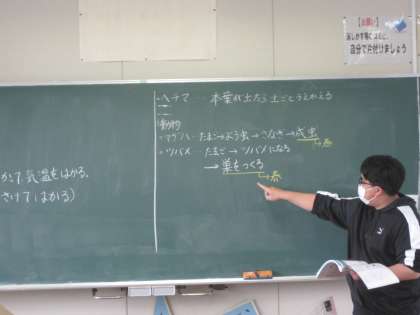 【お願い】
自分で片付けましょう
・ヘチマ … 本葉が出たら土ごとうえかえる
動物
・アゲハ… たまご→よう虫→さなぎ→成虫
→春
・ツバメ… たまご→ツバメになる
→巣をつくる
→春
かで、気温をはかる。
さけてはかる)